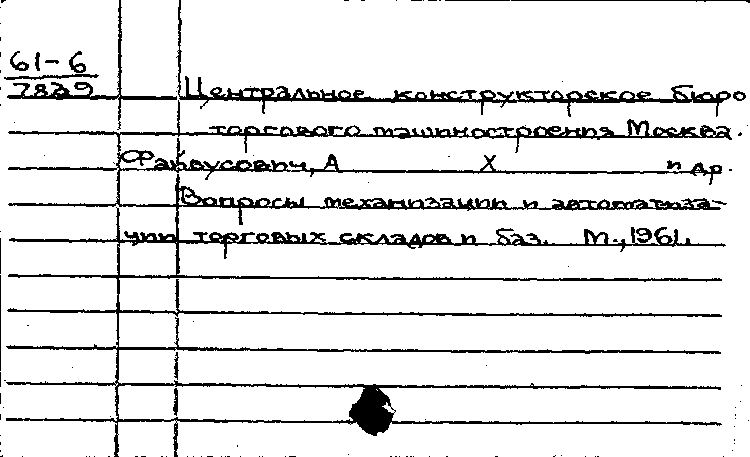 61-6
7839 Центральное конструкторское бюро
торгового машиностроения Москва.
Файвусович, А Х и др.
Вопросы механизации и автоматиза-
ции торговых складов и баз. М., 1961.